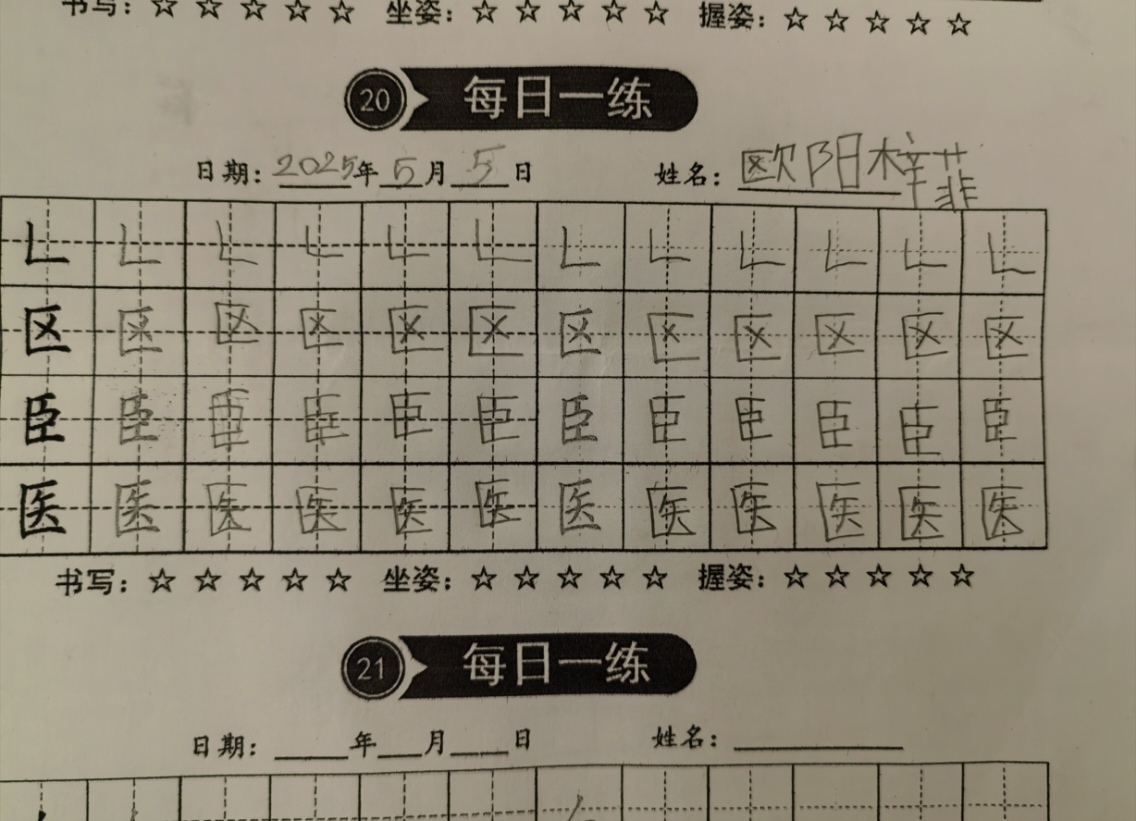 书写：☆ ☆ ☆ ☆ ☆ 坐姿：☆ ☆ ☆ ☆ ☆ 握姿：☆ ☆ ☆ ☆ ☆
20 每日一练
日期：2025年5月5日 姓名：欧阳梓菲
𠃊 𠃊 𠃊 𠃊 𠃊 𠃊 𠃊 𠃊 𠃊 𠃊 𠃊 𠃊
区 区 区 区 区 区 区 区 区 区 区 区
臣 臣 臣 臣 臣 臣 臣 臣 臣 臣 臣 臣
医 医 医 医 医 医 医 医 医 医 医 医
书写：☆ ☆ ☆ ☆ ☆ 坐姿：☆ ☆ ☆ ☆ ☆ 握姿：☆ ☆ ☆ ☆ ☆
21 每日一练
日期：____年___月___日 姓名：________